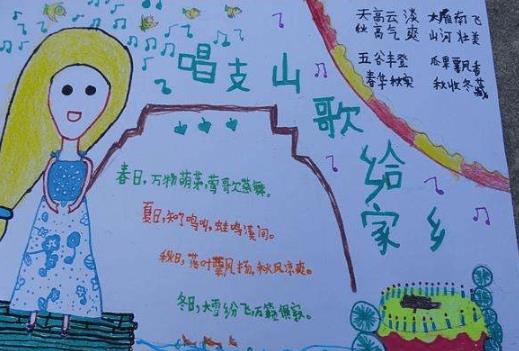 天高云淡 大雁南飞
秋高气爽 山河壮美
五谷丰登 瓜果飘香
春华秋实 秋收冬藏
唱支山歌给家乡
春日,万物萌芽,莺歌燕舞。
夏日,知了鸣叫,蛙鸣溪间。
秋日,落叶飘扬,秋风凉爽。
冬日,大雪纷飞,万籁俱寂。